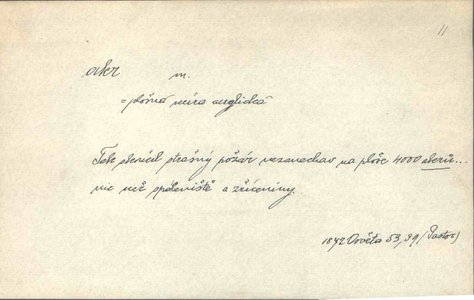 11
akr m.
= plošná míra anglická
Tak skončil strašný požár nezanechav na ploše 4000 akrů...
nic než spáleniště a zříceniny.
1872 Osvěta 53, 39 (Pastor)